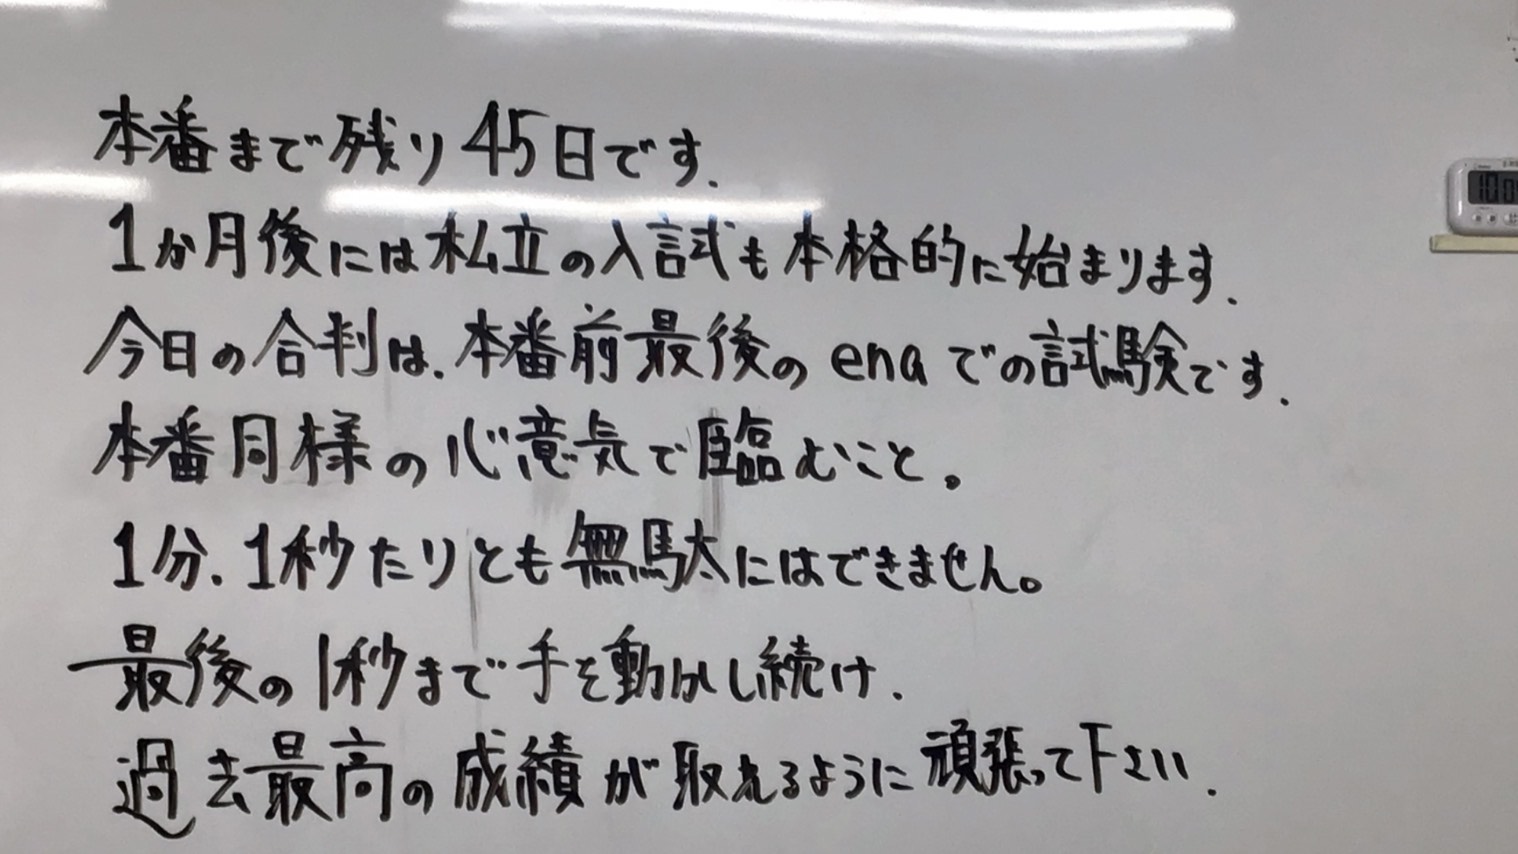 本番まで残り45日です.
1か月後には私立の入試も本格的に始まります.
今日の合判は.本番前最後のenaでの試験です.
本番同様の心意気で臨むこと。
1分.1秒たりとも無駄にはできません。
最後の1秒まで手を動かし続け.
過去最高の成績が取れるように頑張って下さい.